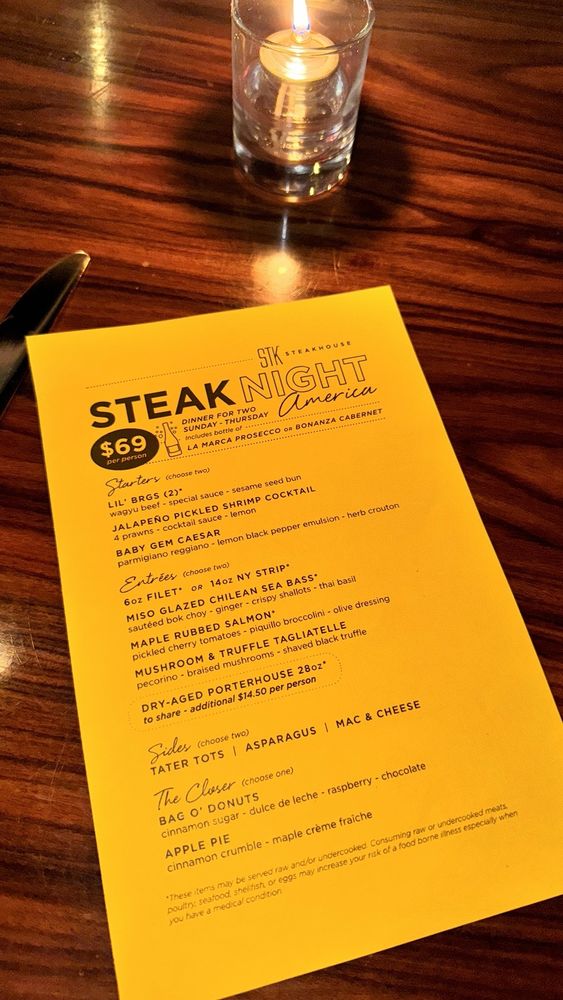 STK STEAKHOUSE
STEAK NIGHT
America
$69
per person
DINNER FOR TWO
SUNDAY - THURSDAY
Includes bottle of
LA MARCA PROSECCO OR BONANZA CABERNET
Starters (choose two)
LIL' BRGS (2)*
wagyu beef - special sauce - sesame seed bun
JALAPEÑO PICKLED SHRIMP COCKTAIL
4 prawns - cocktail sauce - lemon
BABY GEM CAESAR
parmigiano reggiano - lemon black pepper emulsion - herb crouton
Entrées (choose two)
6oz FILET* OR 14oz NY STRIP*
MISO GLAZED CHILEAN SEA BASS*
sautéed bok choy - ginger - crispy shallots - thai basil
MAPLE RUBBED SALMON*
pickled cherry tomatoes - piquillo broccolini - olive dressing
MUSHROOM & TRUFFLE TAGLIATELLE
pecorino - braised mushrooms - shaved black truffle
DRY-AGED PORTERHOUSE 28oz*
to share - additional $14.50 per person
Sides (choose two)
TATER TOTS | ASPARAGUS | MAC & CHEESE
The Closer (choose one)
BAG O' DONUTS
cinnamon sugar - dulce de leche - raspberry - chocolate
APPLE PIE
cinnamon crumble - maple crème fraîche
*These items may be served raw and/or undercooked. Consuming raw or undercooked meats,
poultry, seafood, shellfish, or eggs may increase your risk of a food borne illness especially when
you have a medical condition.